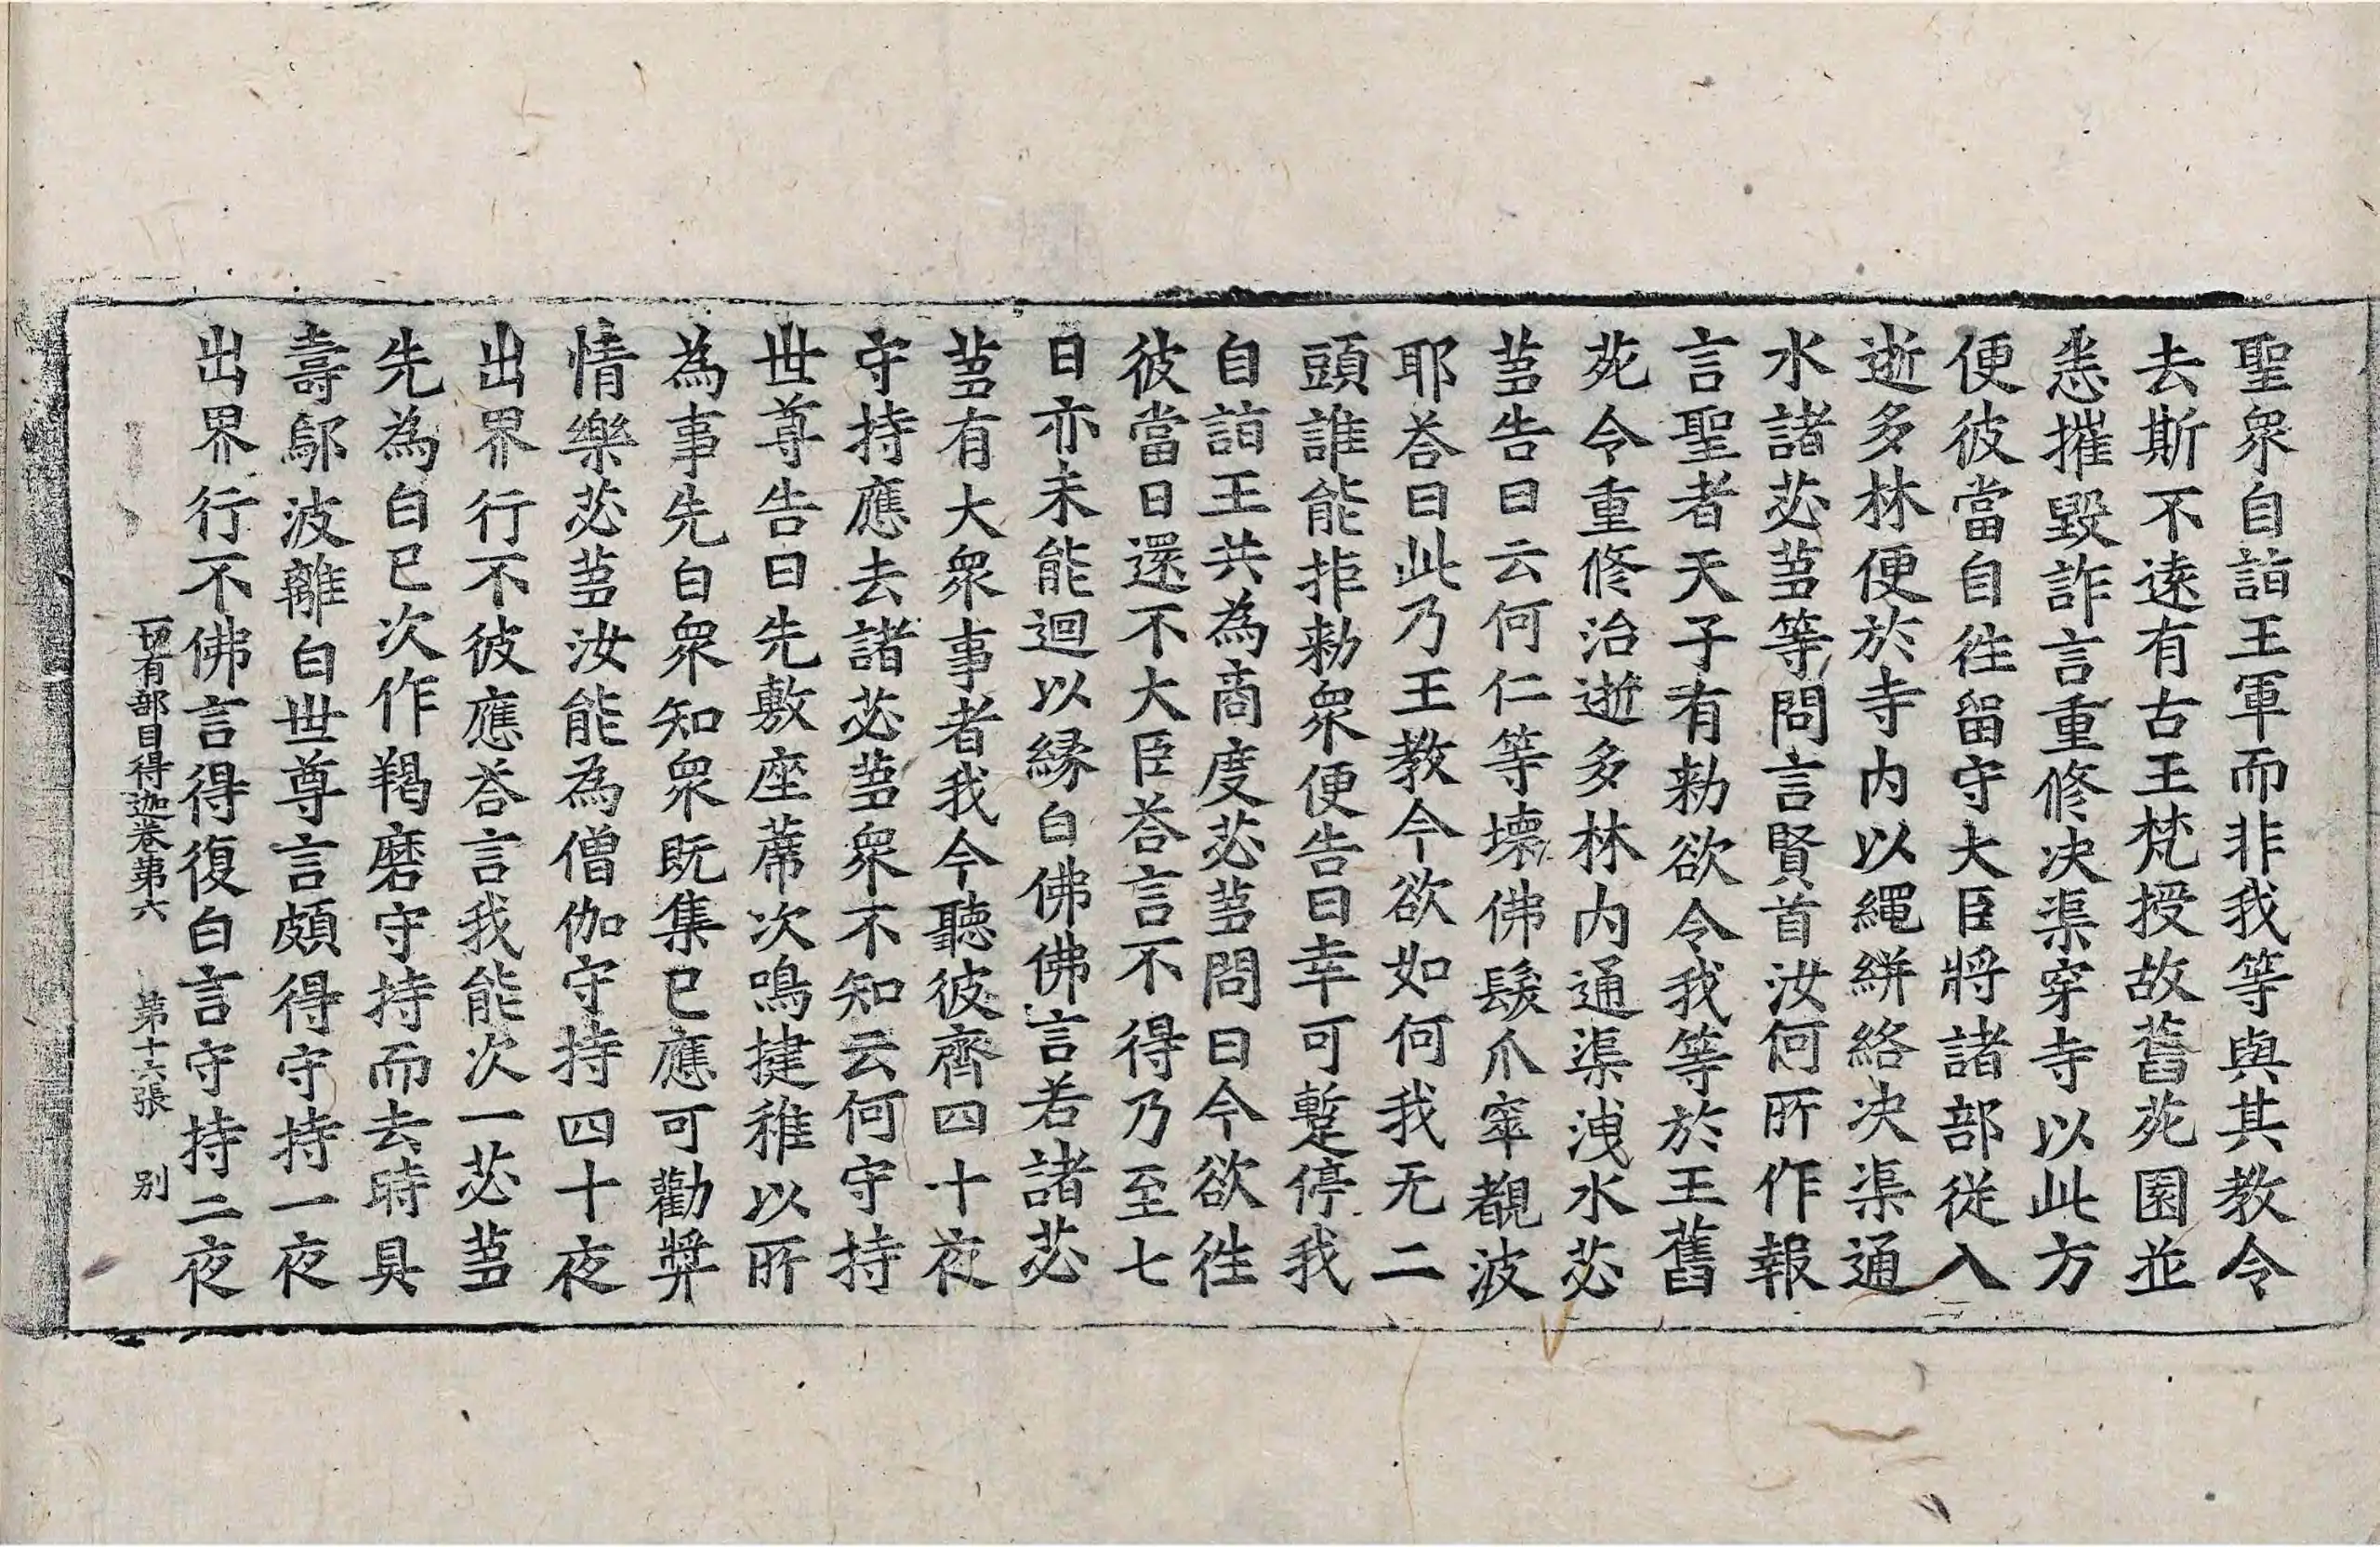 聖衆自詣王軍而非我等與其教令
去斯不遠有古王梵授故舊苑園並
悉摧毀詐言重修決渠穿寺以此方
便彼當自徃留守大臣將諸部従入
逝多林便於寺内以繩絣絡决渠通
水諸苾蒭等問言賢首汝何所作報
言聖者天子有勑欲令我等於王舊
苑令重修治逝多林内通渠洩水苾
蒭告曰云何仁等壞佛髮爪窣覩波
耶荅曰此乃王教今欲如何我无二
頭誰能拒勑衆便告曰幸可蹔停我
自詣王共為商度苾蒭問曰今欲徃
彼當日還不大臣荅言不得乃至七
日亦未能迴以縁白佛佛言若諸苾
蒭有大衆事者我今聽彼齊四十夜
守持應去諸苾蒭衆不知云何守持
世尊告曰先敷座蓆次鳴揵稚以所
為事先白衆知衆既集已應可勸奬
情樂苾蒭汝能為僧伽守持四十夜
出界行不彼應荅言我能次一苾蒭
先為白已次作羯磨守持而去時具
壽鄔波離白世尊言頗得守持一夜
出界行不佛言得復白言守持二夜
一切有部目得迦卷第六　第十六張　別